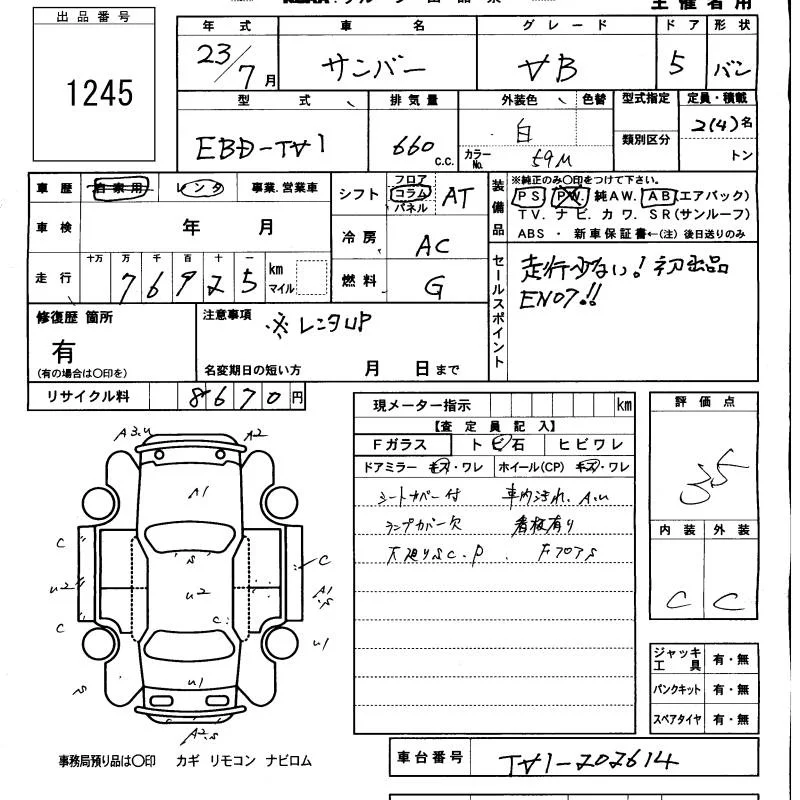 出品番号
1245
主催者用
年式 車名 グレード ドア 形状
23/7月 サンバー VB 5 バン
型式 排気量 外装色 色替 型式指定 定員・積載
EBD-TV1 660 c.c. 白 カラーNo. 59M 類別区分 2(4)名 トン
車歴 自家用 レンタ 事業.営業車
シフト フロア コラム パネル AT
装備品 ※純正のみ〇印をつけて下さい。
PS. PW. 純AW. AB(エアバック)
TV. ナビ. カワ. SR(サンルーフ)
ABS ・ 新車保証書←(注) 後日送りのみ
車検 年 月
冷房 AC
走行 十万 万 千 百 十 一
76925 km マイル
燃料 G
セールスポイント 走行少ない! 初出品
EN07!!
修復歴 箇所
有
(有の場合は〇印を)
注意事項 ※レンタUP
名変期日の短い方 月 日まで
リサイクル料 8670円
現メーター指示 km
【査定員記入】
Fガラス トビ石 ヒビワレ
ドアミラー キズ・ワレ ホイール(CP) キズ・ワレ
シートカバー付 車内汚れ.A.U
ランプカバー欠 看板有り
下廻りSC.P. FフロアS
評価点
3.5
内装 外装
C C
A3.U A2
A1
S
C C
U2 U2 A1.S
C C
U1
S U1
A2.S
ジャッキ工具 有・無
パンクキット 有・無
スペアタイヤ 有・無
事務局預り品は〇印 カギ リモコン ナビロム
車台番号 TV1-202614